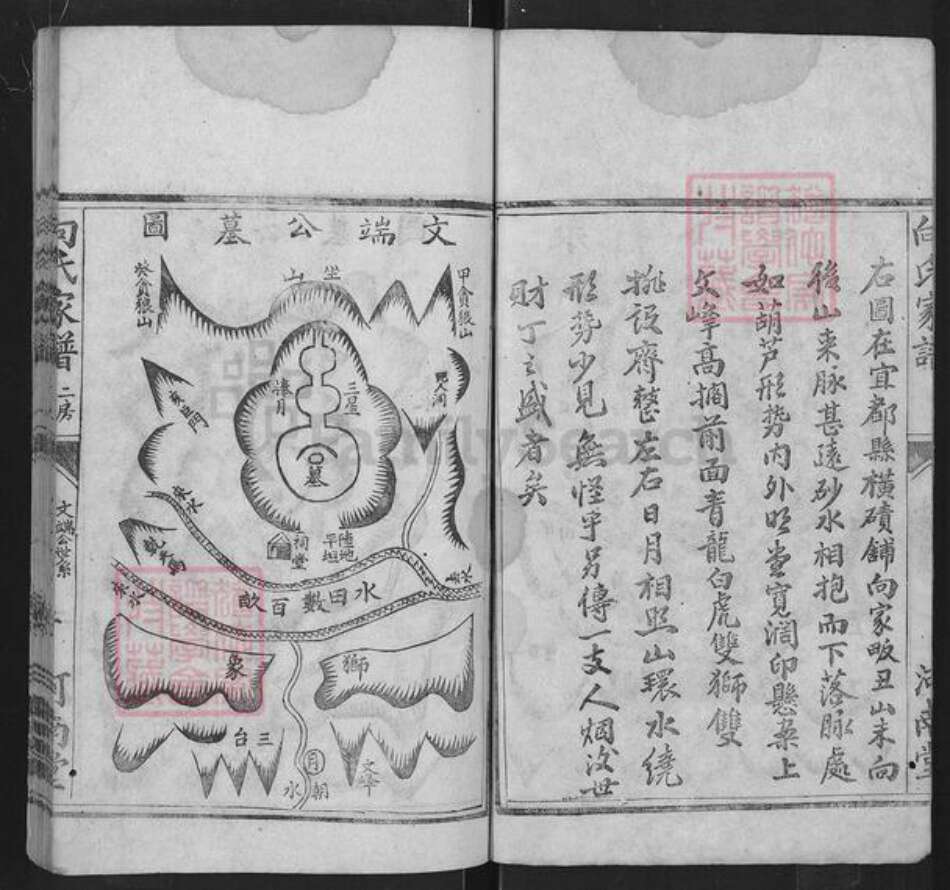 向氏家譜
右圖在宜都縣橫磧鋪向家畈丑山未向
後山来脉甚遠砂水相抱而下落脉處
如葫芦形势内外明堂寬濶印懸案上
文峰高摘前面青龍白虎雙獅雙
排設齊整左右日月相照山環水繞
形势少見無怪乎另傳一支人烟沒世
財丁之盛者矣
河南堂
文端公墓圖
甲貪狼山
坐山
癸貪狼山
三星
捧月
墓
祠堂
陸地平坦
来水
来水
来水
水田數百畝
獅
象
三台
文峯
月
朝水
向氏家譜
二房
文端公世系
河南堂
familysearch